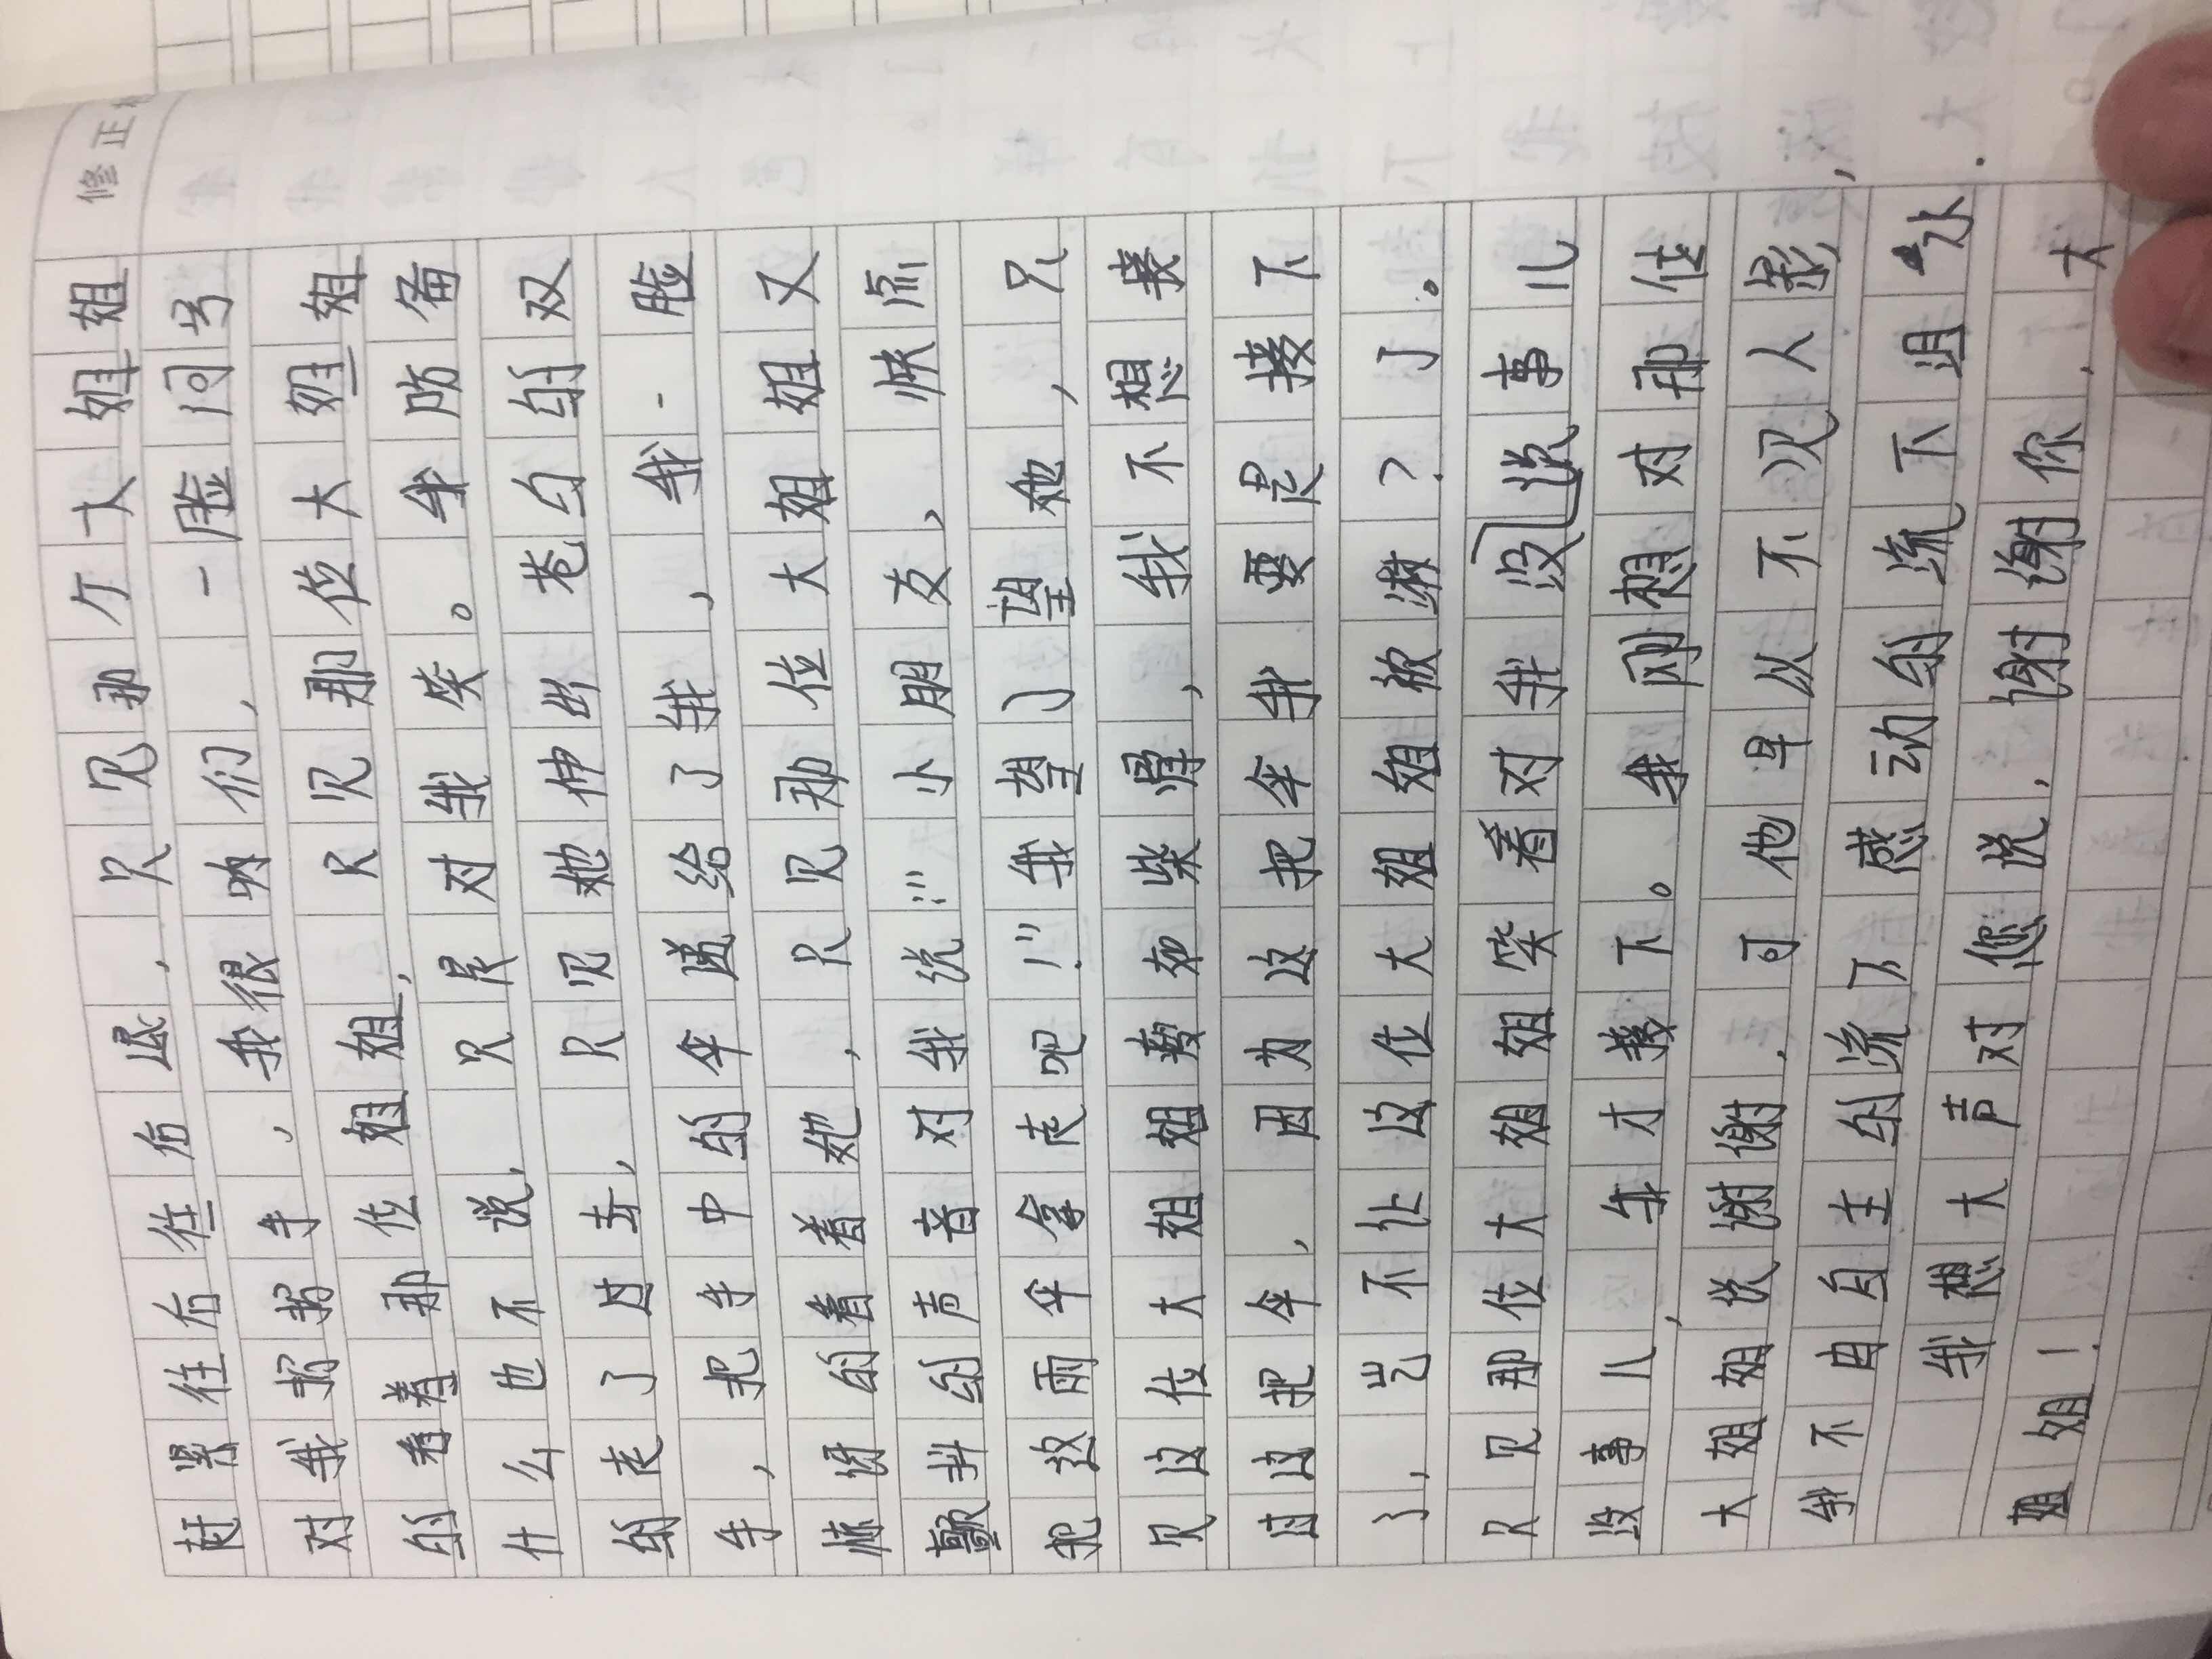 修正
赶紧往后往后退，只见那个大姐姐
对我招招手，我很呐们，一脸问号
的看着那位姐姐，只见那位大姐姐
什么也不说，只是对我笑。我防备
的走了过去，只见她伸出苍白的双
手，把手中的伞递给了我，我一脸
懵愣的看着她，只见那位大姐姐又
颤抖的声音对我说：“小朋友，快点
把这雨伞拿走吧！”我望了望她，只
见这位大姐姐骨瘦如柴，我不想接
过这把伞，因为这把伞我要是接下
了，岂不让这位大姐姐被淋？了。
只见那位大姐姐笑着对我没说事儿
没事儿，我才接下。我刚想对那位
大姐姐说谢谢，可他早以不见人影，
我不由自主的流下了感动的流下泪水.
我想大声对您说，谢谢你，大
姐姐！